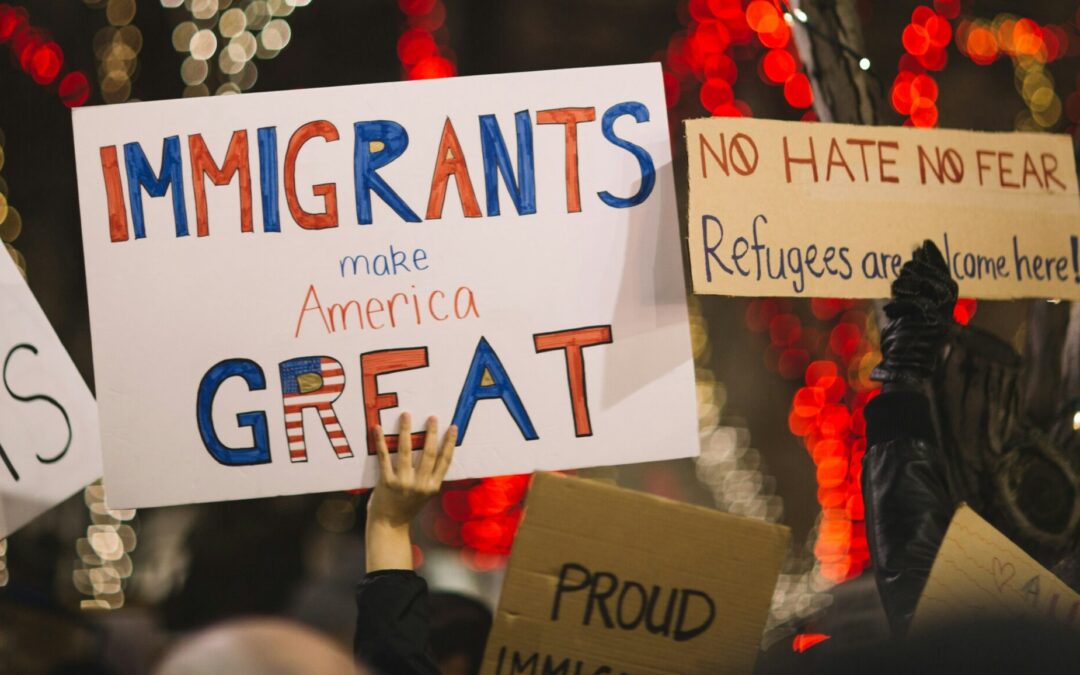 IMMIGRANTS
make
America
GREAT
NO HATE NO FEAR
Refugees are here!
PROUD
S